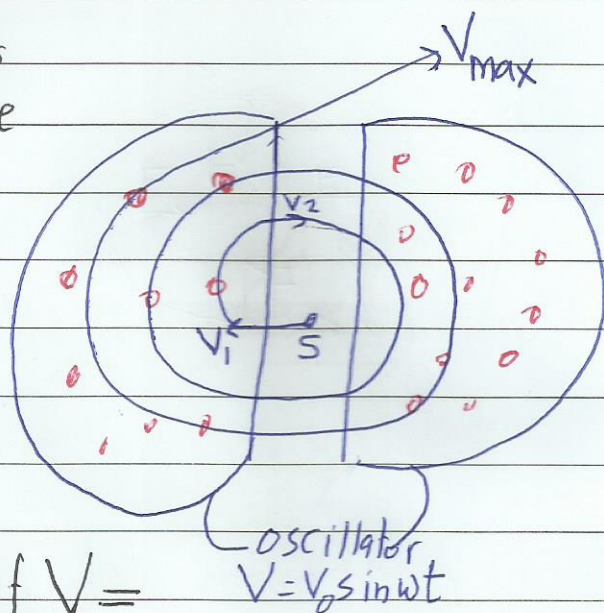 s
Vmax
e
V2
V1
S
oscillator
f V=
V=V₀sinωt